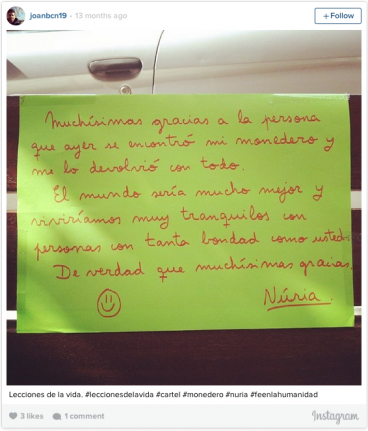 joanbcn19 · 13 months ago
+Follow
Muchísimas gracias a la persona
que ayer se encontró mi monedero y
me lo devolvió con todo.
El mundo sería mucho mejor y
viviríamos muy tranquilos con
personas con tanta bondad como usted.
De verdad que muchísimas gracias.
Núria.
Lecciones de la vida. #leccionesdelavida #cartel #monedero #nuria #feenlahumanidad
3 likes 1 comment
Instagram